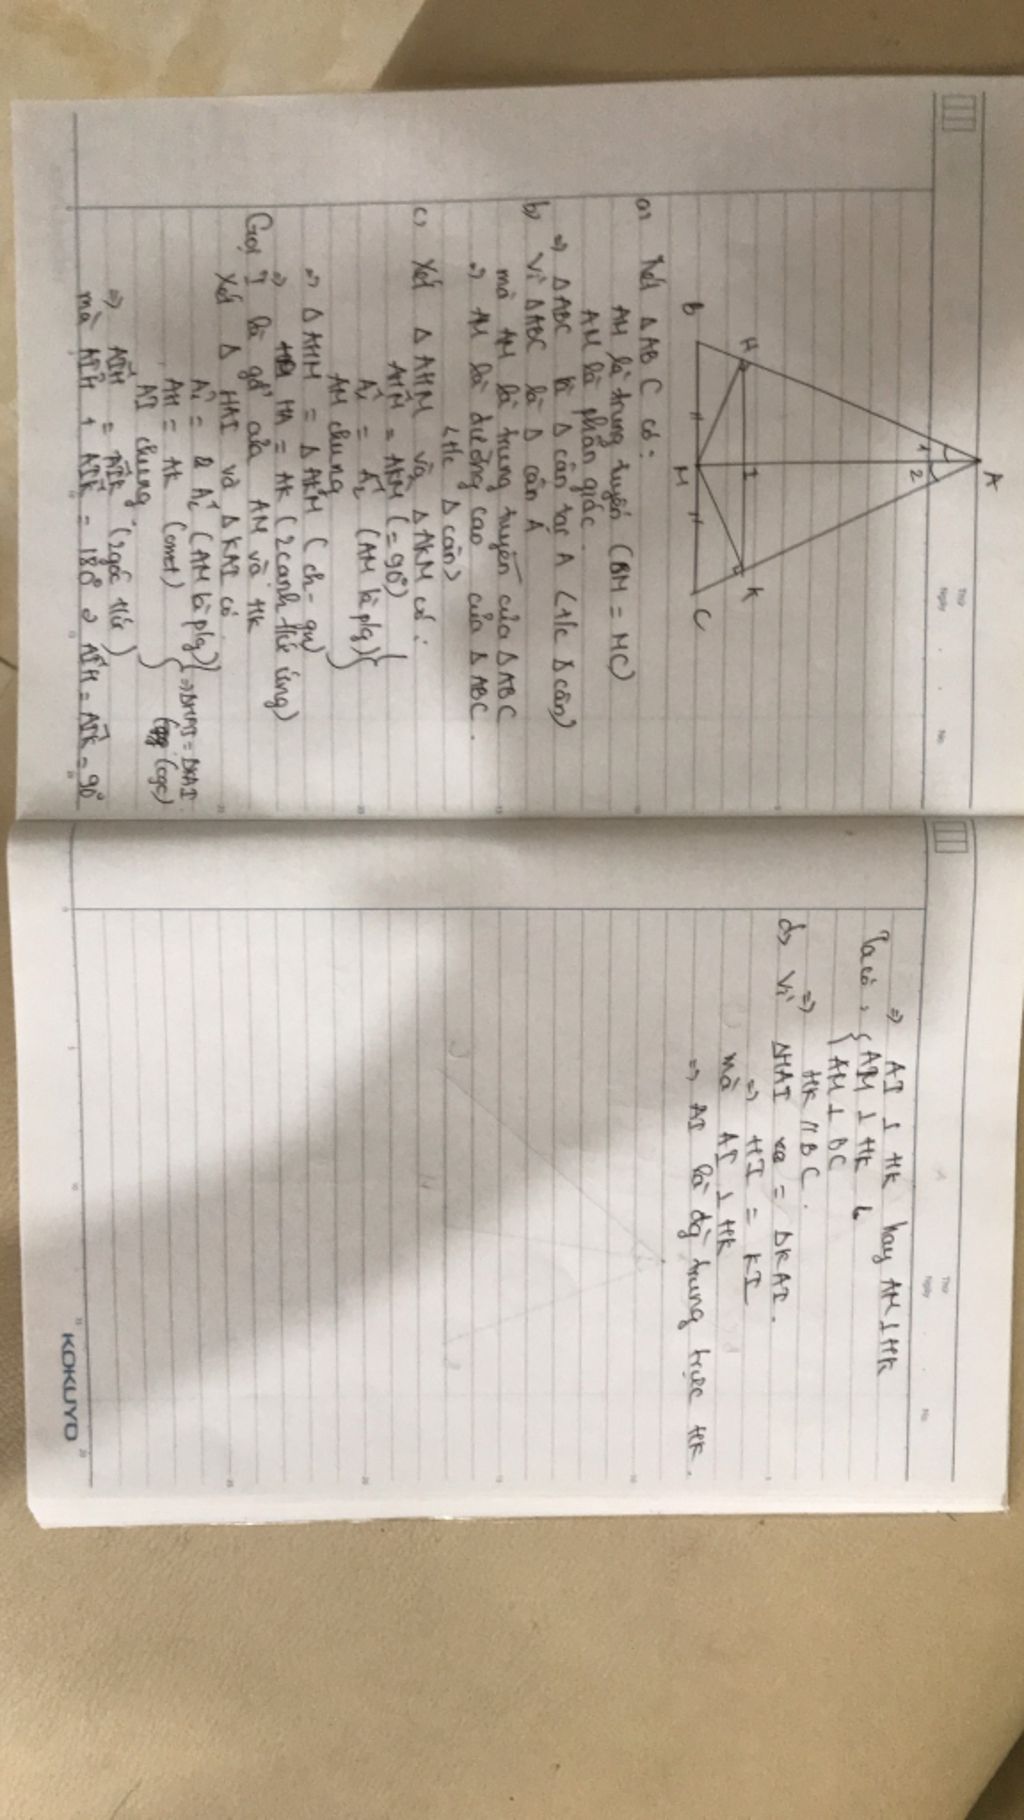 Thứ
Ngày
No.
A
1
2
H
I
K
B
M
C
a) Xét ΔABC có:
AM là trung tuyến (BM = MC)
AM là phân giác.
⇒ ΔABC là Δ cân tại A (t/c Δ cân)
b) Vì ΔABC là Δ cân A
mà AM là trung tuyến của ΔABC
⇒ AM là đường cao của ΔABC.
(t/c Δ cân)
c) Xét ΔAHM và ΔAKM có:
AĤM = AK̂M (= 90°)
Â1 = Â2 (AM là p/g)
AM chung
⇒ ΔAHM = ΔAKM (ch - gn)
⇒ HA = AK (2 cạnh tứ ứng)
Gọi I là gđ của AM và HK
Xét Δ HAI và ΔKAI có
Â1 = Â2 (AM là p/g)
AH = AK (cmt)
AI chung
⇒ ΔHAI = ΔKAI
(cgc)
⇒ AÎH = AÎK (2 góc tứ)
mà AÎH + AÎK = 180° ⇒ AÎH = AÎK = 90°
Thứ
Ngày
No.
⇒ AI ⊥ HK hay AM ⊥ HK
Ta có, { AM ⊥ HK
AM ⊥ BC
⇒ HK // BC.
d) Vì ΔHAI = ΔKAI.
⇒ HI = KI
mà AI ⊥ HK
⇒ AI là đg trung trực HK.
KOKUYO